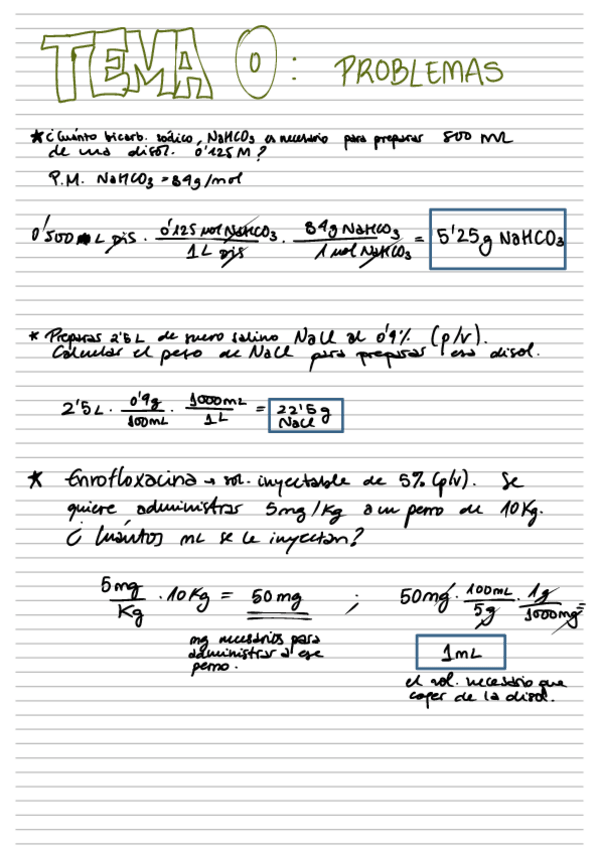 TEMA 0: PROBLEMAS
* ¿Cuánto bicarb. sódico, NaHCO3 es necesario para preparar 500 mL
de una disol. 0'125 M?
P.M. NaHCO3 = 84g/mol
0'500 L dis · 0'125 mol NaHCO3 / 1L dis · 84g NaHCO3 / 1 mol NaHCO3 = 5'25g NaHCO3
* Preparas 2'5L de suero salino NaCl al 0'9% (p/v).
Calcular el peso de NaCl para preparar esa disol.
2'5L · 0'9g / 100mL · 1000mL / 1L = 22'5 g NaCl
* Enrofloxacina → sol. inyectable de 5% (p/v). Se
quiere administrar 5mg/Kg a un perro de 10Kg.
¿Cuántos mL se le inyectan?
5mg / Kg · 10Kg = 50mg ; 50mg · 100mL / 5g · 1g / 1000mg =
mg necesarios para
administrar a ese
perro.
1mL
el vol. necesario que
coger de la disol.